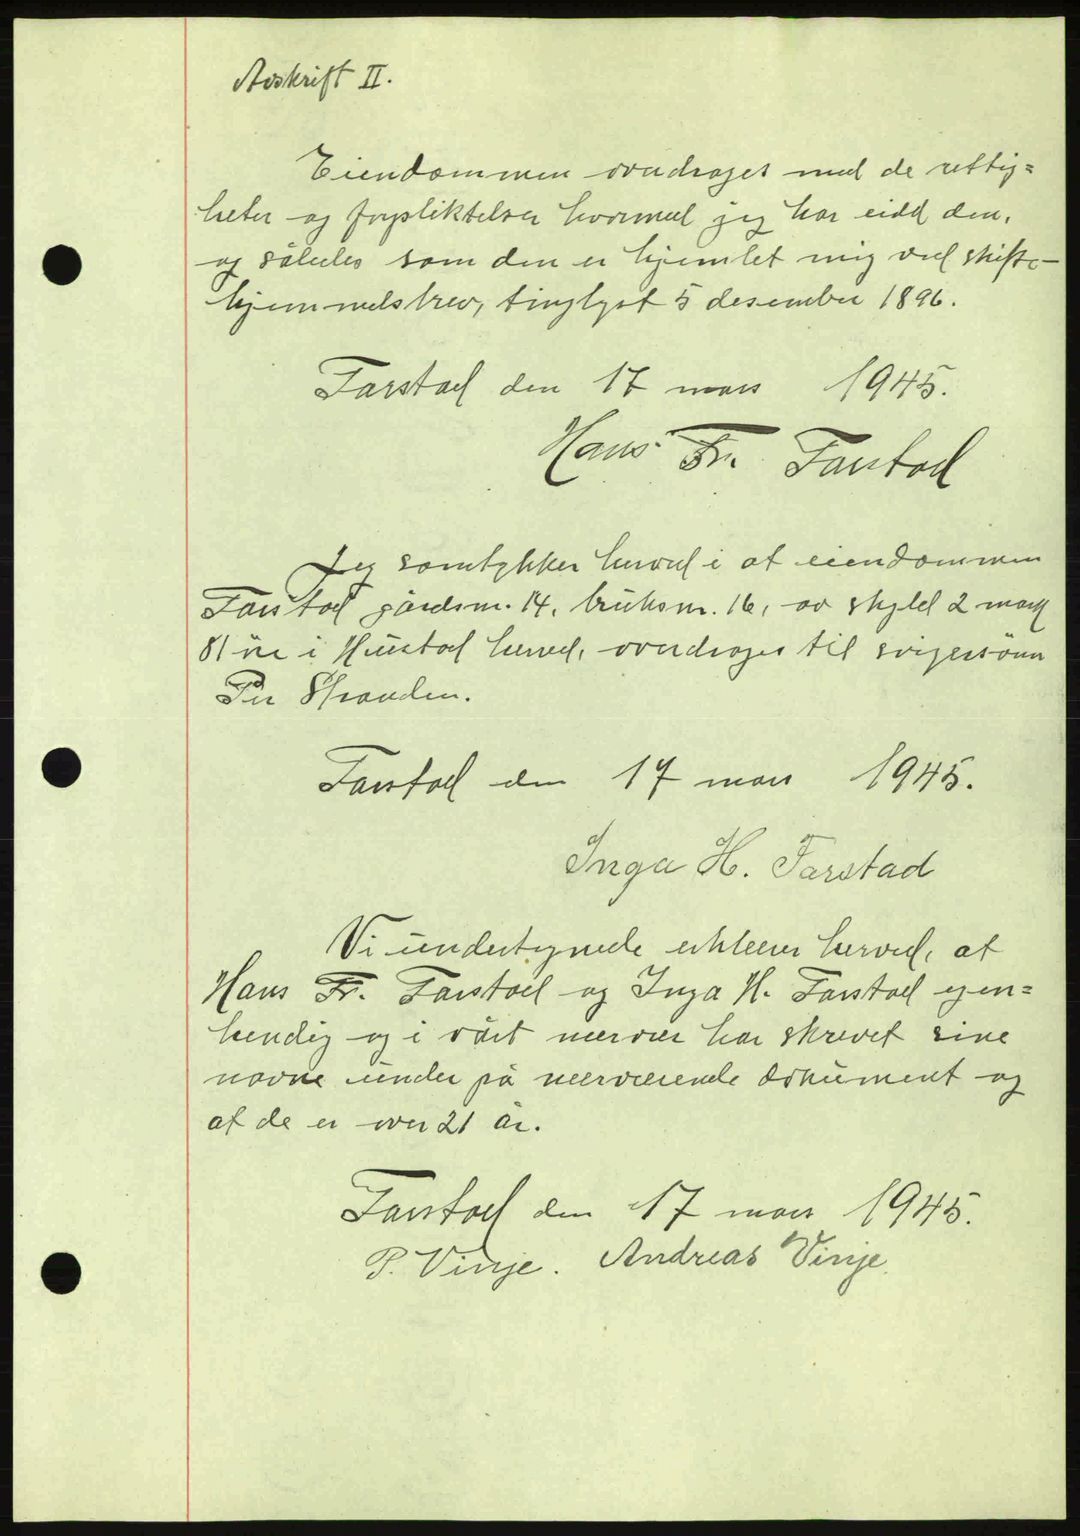 Avskrift II.
Eiendommen overdrages med de rettig=
heter og forpliktelser hvormed jeg har eidd den,
og således som den er hjemlet mig ved skifte-
hjemmelsbrev, tinglyst 5 desember 1896.
Farstad den 17 mars 1945.
Hans Fr. Farstad
Jeg samtykker herved i at eiendommen
Farstad gårdsnr. 14, bruksnr. 16, av skyld 2 mark
81 øre i Hustad herred, overdroges til svigersønn
Per Stranden.
Farstad den 17 mars 1945.
Inga H. Farstad
Vi undertegnede erklærer herved, at
Hans Fr. Farstad og Inga H. Farstad egen=
hendig og i vårt nærvær har skrevet sine
navne under på nærværende dokument og
at de er over 21 år.
Farstad den 17 mars 1945.
P. Vinje. Andreas Vinje.